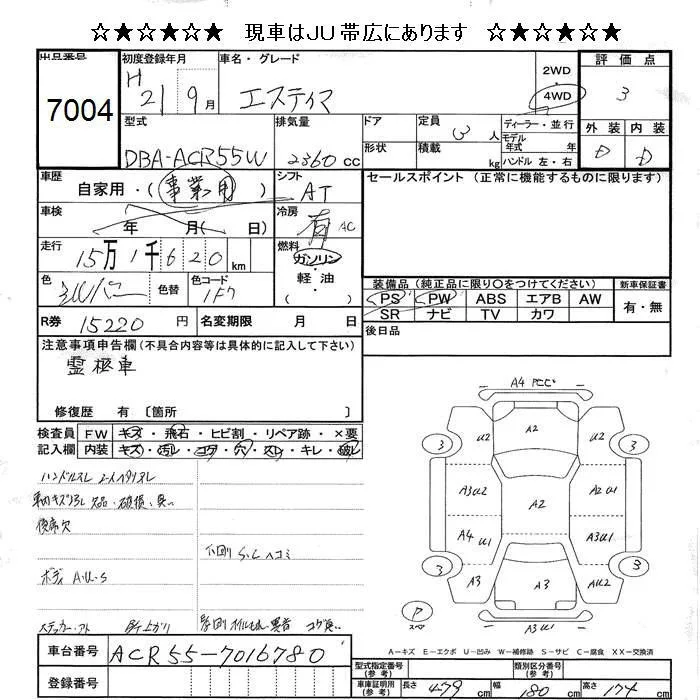 ☆★☆★☆★ 現車はJU帯広にあります ☆★☆★☆★
出品番号 7004
初度登録年月 H 21 9月
車名・グレード エスティマ
2WD 4WD
評価点 3
型式 DBA-ACR55W
排気量 2360 cc
ドア 形状
定員 3 人
積載 kg
ディーラー・並行
モデル年式 年
ハンドル 左・右
外装 D 内装 D
車歴 自家用・(事業用)
シフト AT
セールスポイント (正常に機能するものに限ります)
車検 年 月( 日)
冷房 有 AC
走行 15万1千620 km
燃料 ガソリン・軽油
色 シルバー 色替 色コード 1F7
装備品 (純正品に限り〇をつけてください) 新車保証書
PS PW ABS エアB AW 有・無
SR ナビ TV カワ
R券 15220 円 名変期限 月 日
後日品
注意事項申告欄 (不具合内容等は具体的に記入して下さい)
霊柩車
修復歴 有 〔箇所
検査員 FW キズ・飛石・ヒビ割・リペア跡・×要
記入欄 内装 キズ・汚レ・コゲ・穴・スレ・キレ・破レ
ハンドルスレ
欠品・破損
下回りS.C ヘコミ
ボディ A.U.S
ステッカーアト
A4
U2 A2 U2
3 3
A3U2 A2 A2U1
A4 U1 A3U1
3 3
A3 A3 A2U2
P スペア
A3U1
A-キズ E-エクボ U-凹み W-補修跡 S-サビ C-腐食 XX-交換済
車台番号 ACR55-7016780
登録番号
型式指定番号 (参考) 類別区分番号 (参考)
車庫証明用 (参考) 長さ 479 cm 幅 180 cm 高さ 174 cm